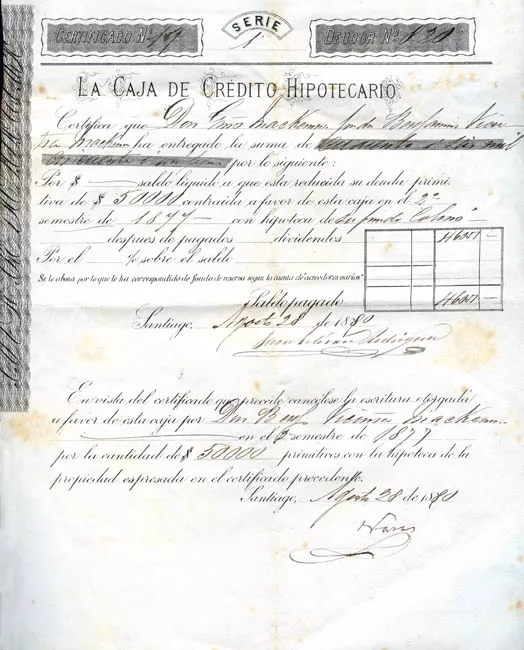 SERIE
CERTIFICADO Nº 1
DEUDOR Nº 121
LA CAJA DE CRÉDITO HIPOTECARIO
Certifica que Don Mackenna Benjamin Vicu
ña Mackenna ha entregado la suma de
por lo siguiente:
Por $ — saldo líquido a que está reducida su deuda primi-
tiva de $ 50000 contraida a favor de esta caja en el 2º
semestre de 1877 — con hipoteca de su fundo Colmo
— despues de pagados — dividendos 46051 —
Por el — % sobre el saldo
Se le abona por lo que le ha correspondido de fondo de reserva segun la cuenta de acreedores varios
Saldo pagado 46051 —
Santiago, Agosto 28 de 1880
En vista del certificado que precede cancélese la escritura otorgada
a favor de esta caja por Don Benj Vicuña Mackenna
en el 2º semestre de 1877
por la cantidad de $ 50000 primitivos con la hipoteca de la
propiedad espresada en el certificado precedente.
Santiago, Agosto 28 de 1880